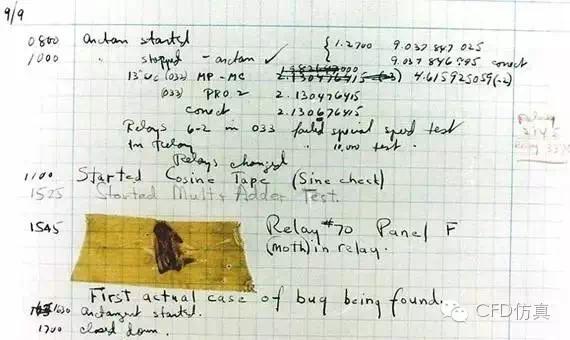 9/9
0800 arctan started
1000 " stopped - arctan ✓ { 1.2700 9.037 847 025
9.037 846 995 correct
13"uc (032) MP-MC 2.130476415 (-3) 4.615925059(-2)
(033) PRO 2 2.130476415
correct 2.130676415
Relays 6-2 in 033 failed special speed test
In Relay " 10,000 test.
Relays changed
Relay
2145
Relay 3370
1100 Started Cosine Tape (Sine check)
1525 Started Mult+Adder Test.
1545 Relay #70 Panel F
(moth) in relay.
First actual case of bug being found.
1630 arctangent started.
1700 closed down.
CFD仿真